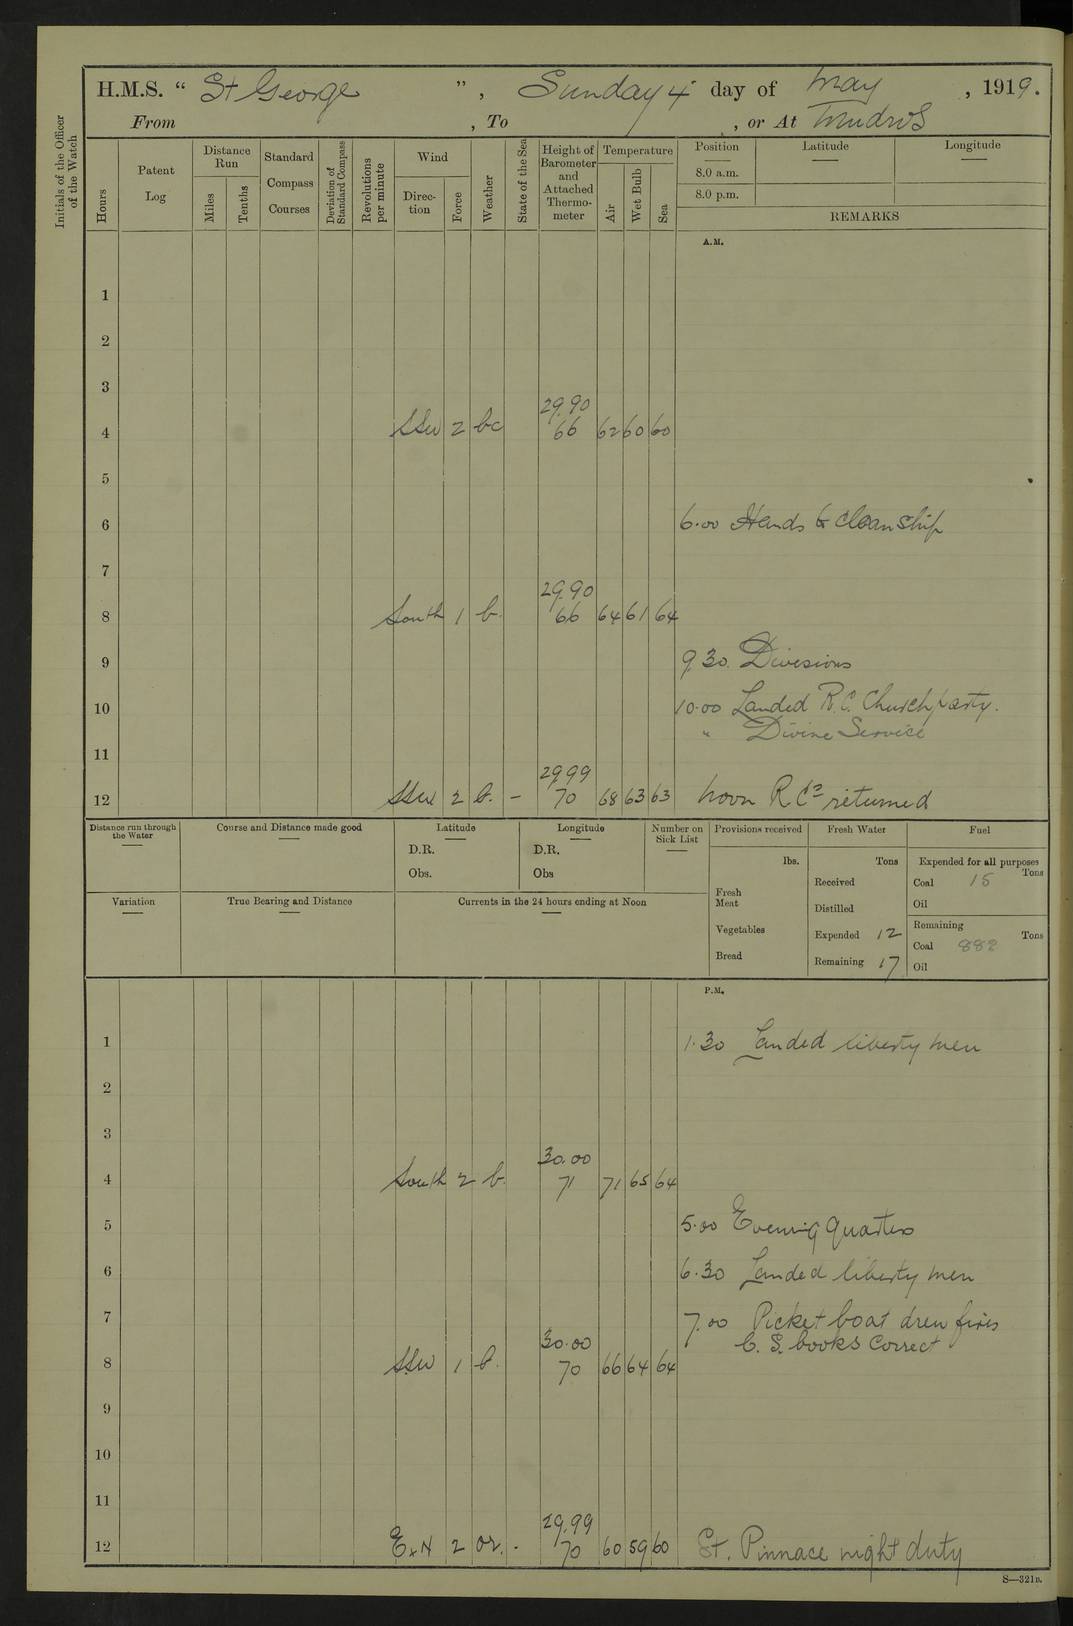 H.M.S. “ St George ” , Sunday 4 day of May , 1919.
From , To , or At Mudros
Initials of the Officer of the Watch
Hours
Patent Log
Distance Run
Miles
Tenths
Standard Compass Courses
Deviation of Standard Compass
Revolutions per minute
Wind
Direction
Force
Weather
State of the Sea
Height of Barometer and Attached Thermometer
Temperature
Air
Wet Bulb
Sea
Position
8.0 a.m.
8.0 p.m.
Latitude
Longitude
REMARKS
A.M.
1
2
3
29.90
4 SSW 2 bc 66 62 60 60
5
6 6.00 Hands to clean ship
7
29.90
8 South 1 b. 66 64 61 64
9 9.30 Divisions
10 10.00 Landed R.C. Church party.
" Divine Service
11
29.99
12 SSW 2 b. - 70 68 63 63 Noon R Cs returned
Distance run through the Water
Course and Distance made good
Latitude
D.R.
Obs.
Longitude
D.R.
Obs
Number on Sick List
Provisions received
lbs.
Fresh Meat
Vegetables
Bread
Fresh Water
Tons
Received
Distilled
Expended 12
Remaining 17
Fuel
Expended for all purposes
Tons
Coal 15
Oil
Remaining
Tons
Coal 882
Oil
Variation
True Bearing and Distance
Currents in the 24 hours ending at Noon
P.M.
1 1.30 Landed liberty men
2
3
30.00
4 South 2 b. 71 71 65 64
5 5.00 Evening Quarters
6 6.30 Landed liberty men
7 7.00 Picket boat drew fires
C. S. books correct
30.00
8 SSW 1 b. 70 66 64 64
9
10
11
29.99
12 ExN 2 or. - 70 60 59 60 St. Pinnace night duty
S—321B.